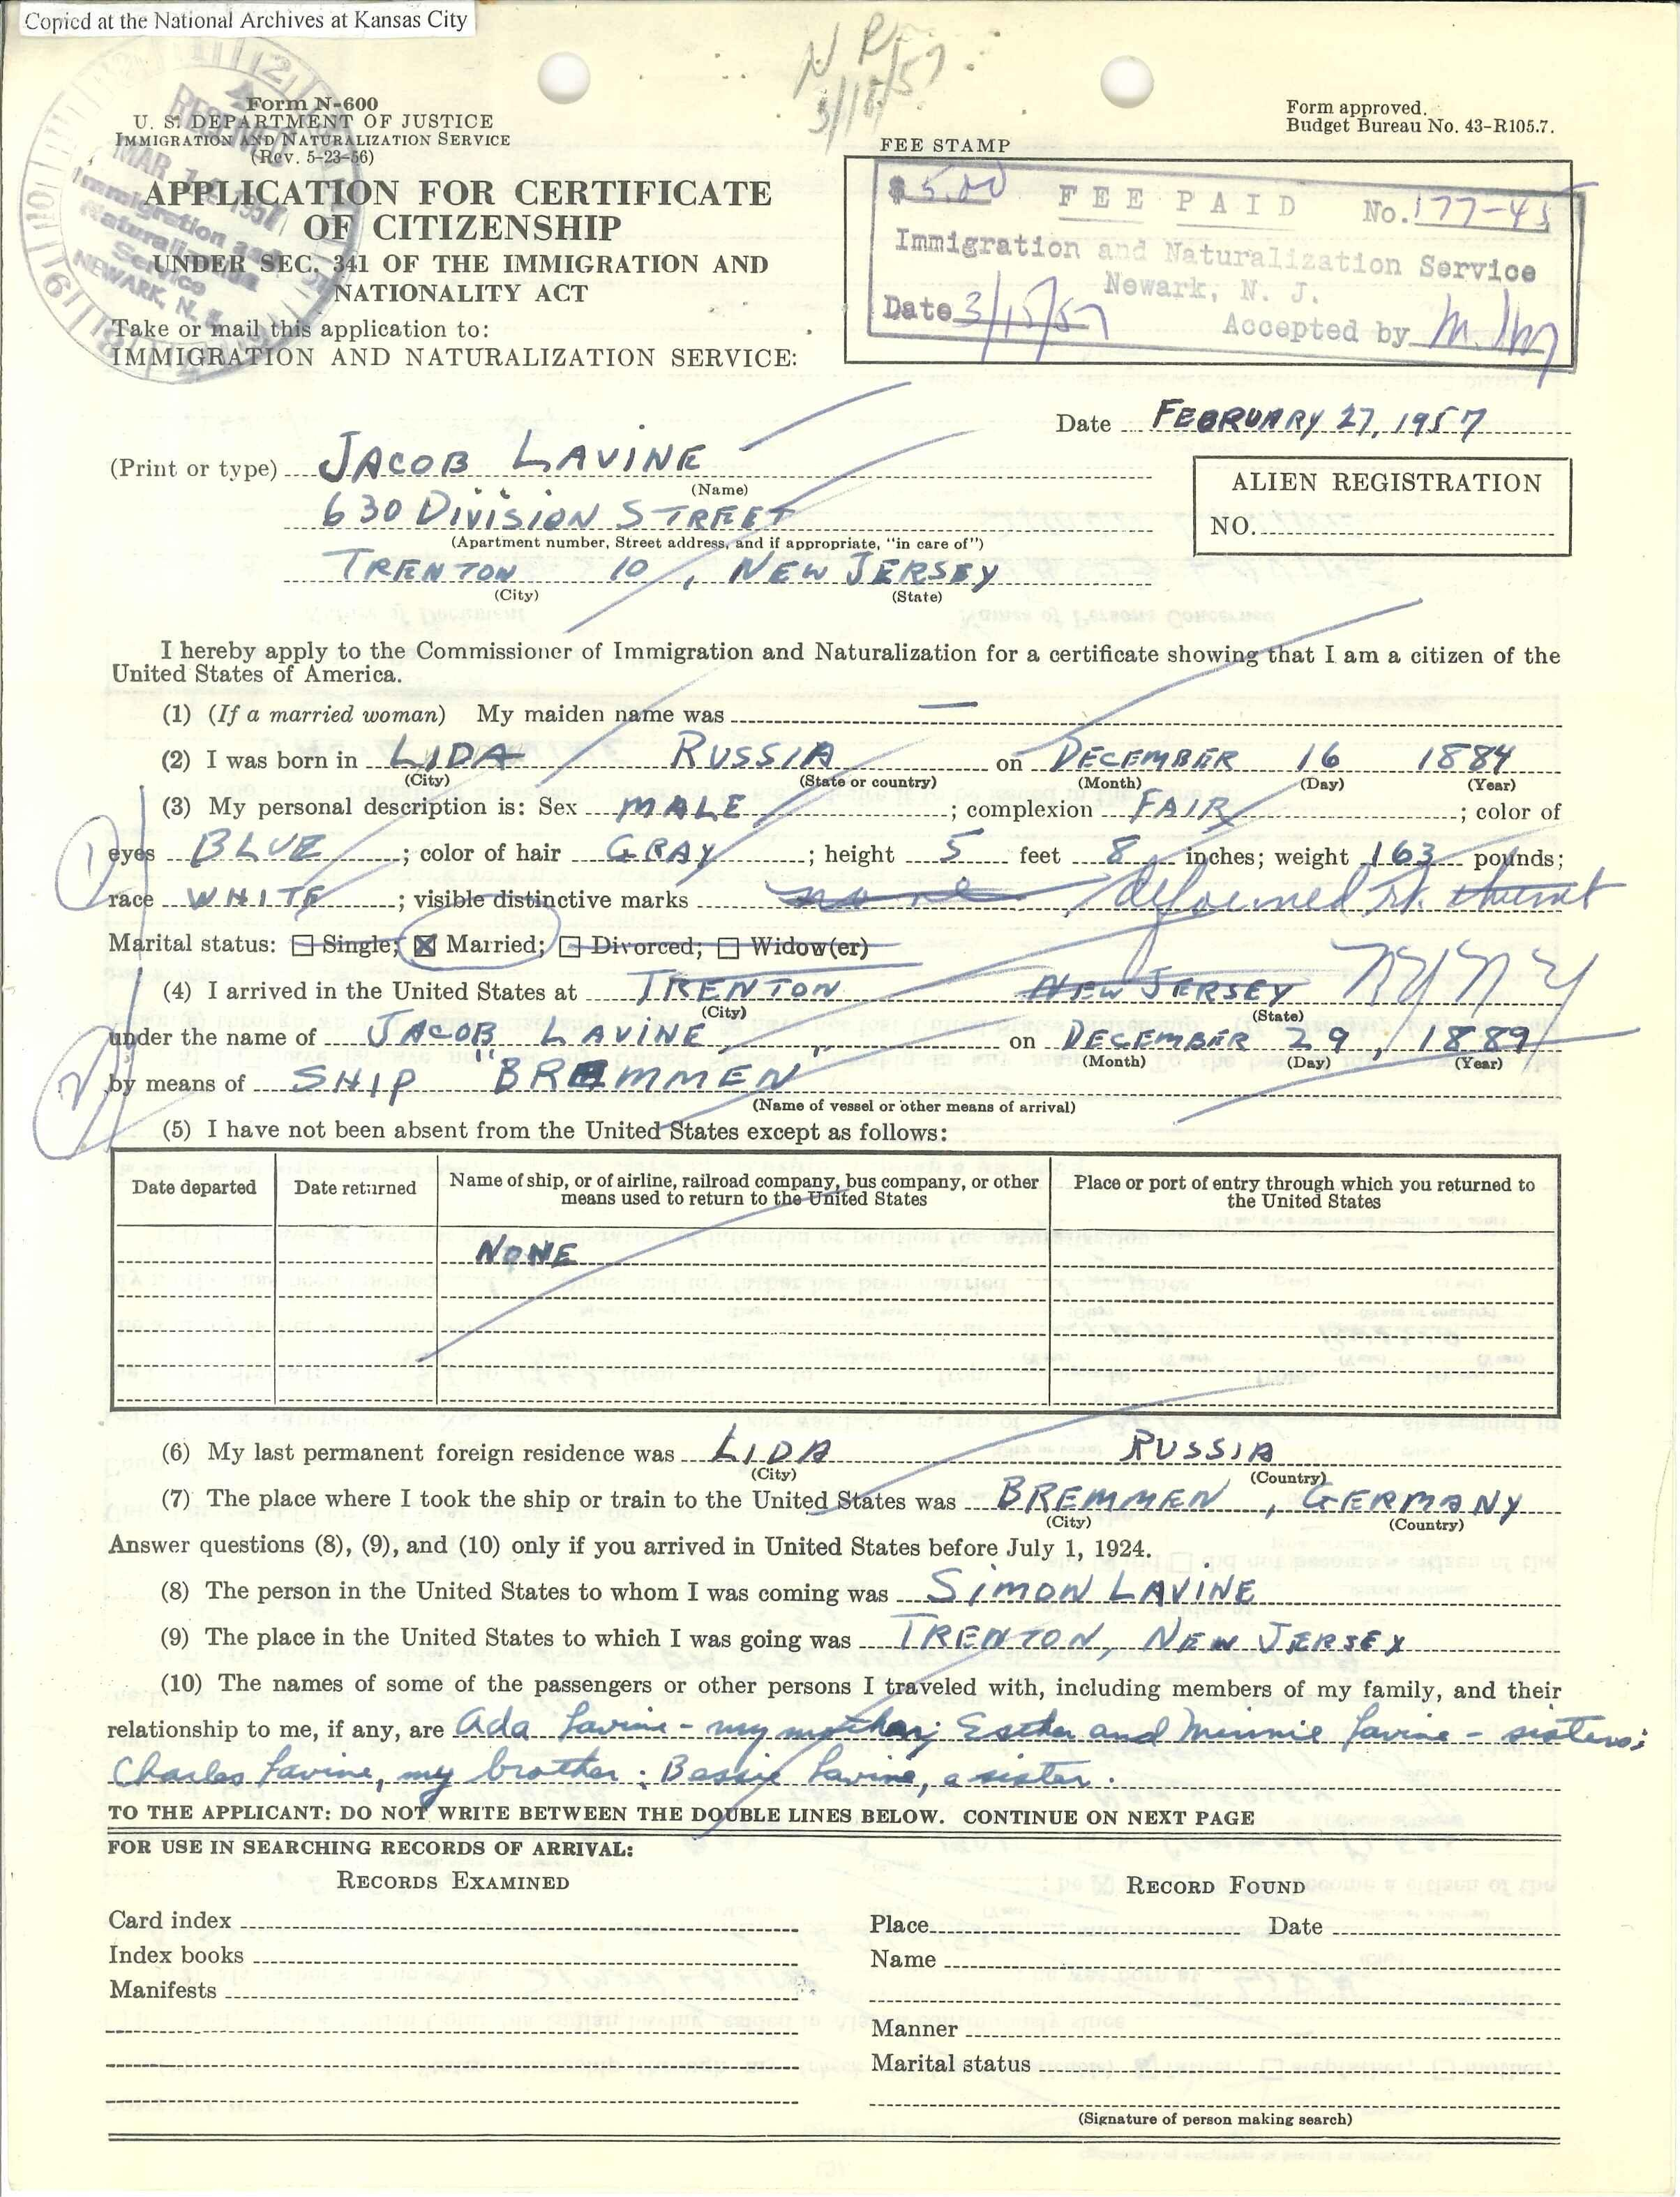 Copied at the National Archives at Kansas City
N R
3/15/57
Form N-600
U. S. DEPARTMENT OF JUSTICE
IMMIGRATION AND NATURALIZATION SERVICE
(Rev. 5-23-56)
RECEIVED
MAR 1 1957
Immigration and
Naturalization
Service
NEWARK, N. J.
Form approved.
Budget Bureau No. 43-R105.7.
APPLICATION FOR CERTIFICATE
OF CITIZENSHIP
UNDER SEC. 341 OF THE IMMIGRATION AND
NATIONALITY ACT
Take or mail this application to:
IMMIGRATION AND NATURALIZATION SERVICE:
FEE STAMP
$5.00 FEE PAID No. 177-45
Immigration and Naturalization Service
Newark, N. J.
Date 3/15/57 Accepted by
Date FEBRUARY 27, 1957
(Print or type) JACOB LAVINE
(Name)
630 DIVISION STREET
(Apartment number, Street address, and if appropriate, "in care of")
TRENTON 10, NEW JERSEY
(City) (State)
ALIEN REGISTRATION
NO.
I hereby apply to the Commissioner of Immigration and Naturalization for a certificate showing that I am a citizen of the
United States of America.
(1) (If a married woman) My maiden name was —
(2) I was born in LIDA RUSSIA on DECEMBER 16 1884
(City) (State or country) (Month) (Day) (Year)
(3) My personal description is: Sex MALE; complexion FAIR; color of
eyes BLUE; color of hair GRAY; height 5 feet 8 inches; weight 163 pounds;
race WHITE; visible distinctive marks none, deformed rt.
Marital status: ☐ Single; ☒ Married; ☐ Divorced; ☐ Widow(er)
(4) I arrived in the United States at TRENTON NEW JERSEY NY NY
(City) (State)
under the name of JACOB LAVINE on DECEMBER 29, 1889
(Month) (Day) (Year)
by means of SHIP "BREMMEN"
(Name of vessel or other means of arrival)
(5) I have not been absent from the United States except as follows:
Date departed Date returned Name of ship, or of airline, railroad company, bus company, or other means used to return to the United States Place or port of entry through which you returned to the United States
NONE
(6) My last permanent foreign residence was LIDA RUSSIA
(City) (Country)
(7) The place where I took the ship or train to the United States was BREMMEN, GERMANY
(City) (Country)
Answer questions (8), (9), and (10) only if you arrived in United States before July 1, 1924.
(8) The person in the United States to whom I was coming was SIMON LAVINE
(9) The place in the United States to which I was going was TRENTON, NEW JERSEY
(10) The names of some of the passengers or other persons I traveled with, including members of my family, and their
relationship to me, if any, are Ada Lavine - my mother; Esther and Minnie Lavine - sisters;
Charles Lavine, my brother; Bessie Lavine, a sister.
TO THE APPLICANT: DO NOT WRITE BETWEEN THE DOUBLE LINES BELOW. CONTINUE ON NEXT PAGE
FOR USE IN SEARCHING RECORDS OF ARRIVAL:
RECORDS EXAMINED RECORD FOUND
Card index Place Date
Index books Name
Manifests
Manner
Marital status
(Signature of person making search)